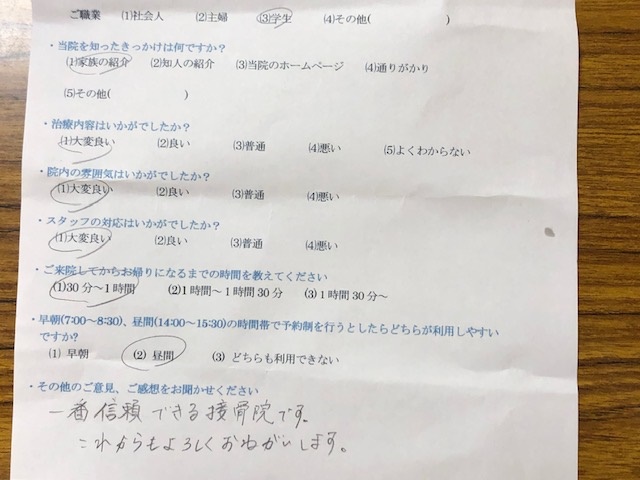 ご職業 (1)社会人 (2)主婦 (3)学生 (4)その他( )
・当院を知ったきっかけは何ですか?
(1)家族の紹介 (2)知人の紹介 (3)当院のホームページ (4)通りがかり
(5)その他( )
・治療内容はいかがでしたか?
(1)大変良い (2)良い (3)普通 (4)悪い (5)よくわからない
・院内の雰囲気はいかがでしたか?
(1)大変良い (2)良い (3)普通 (4)悪い
・スタッフの対応はいかがでしたか?
(1)大変良い (2)良い (3)普通 (4)悪い
・ご来院してからお帰りになるまでの時間を教えてください
(1)30分〜1時間 (2)1時間〜1時間30分 (3)1時間30分〜
・早朝(7:00〜8:30)、昼間(14:00〜15:30)の時間帯で予約制を行うとしたらどちらが利用しやすい
ですか?
(1) 早朝 (2) 昼間 (3) どちらも利用できない
・その他のご意見、ご感想をお聞かせください
一番信頼できる接骨院です。
これからもよろしくおねがいします。